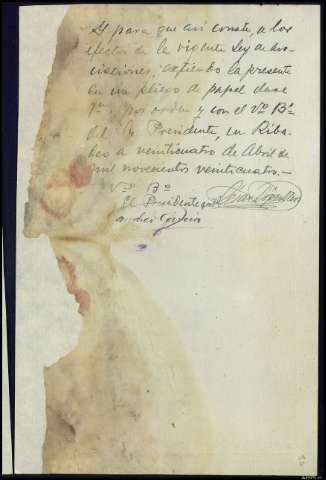 Y para que así conste, a los
efectos de la vigente Ley de Aso-
ciaciones, expido la presente
en un pliego de papel clase
por orden y con el Vº Bº
del Sr Presidente, en Riba-
deo a veinticuatro de Abril de
mil novecientos veinticuatro.-
Vº Bº
El Presidente